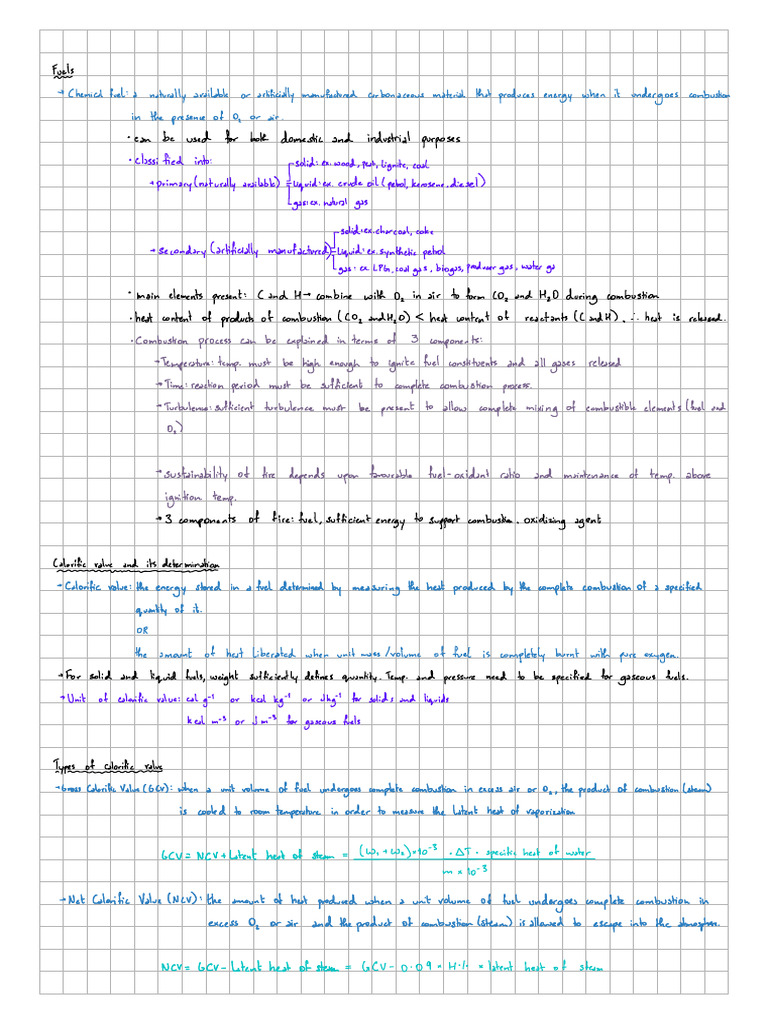 Fuels
→ Chemical fuel: a naturally available or artificially manufactured carbonaceous material that produces energy when it undergoes combustion
in the presence of O₂ or air.
• can be used for both domestic and industrial purposes
• classified into:
solid: ex. wood, peat, lignite, coal
→ primary (naturally available)
liquid: ex. crude oil (petrol, kerosene, diesel)
gas: ex. natural gas
solid: ex. charcoal, coke
→ secondary (artificially manufactured)
liquid: ex. synthetic petrol
gas: ex LPG, coal gas, biogas, producer gas, water ga
• main elements present: C and H → combine with O₂ in air to form CO₂ and H₂O during combustion
• heat content of products of combustion (CO₂ and H₂O) < heat content of reactants (C and H). ∴ heat is released.
• Combustion process can be explained in terms of 3 components:
→ Temperature: temp. must be high enough to ignite fuel constituents and all gases released
→ Time: reaction period must be sufficient to complete combustion process.
→ Turbulence: sufficient turbulence must be present to allow complete mixing of combustible elements (fuel and
O₂)
→ sustainability of fire depends upon favourable fuel-oxidant ratio and maintenance of temp. above
ignition temp.
→ 3 components of fire: fuel, sufficient energy to support combustion, oxidizing agent
Calorific value and its determination
→ Calorific value: the energy stored in a fuel determined by measuring the heat produced by the complete combustion of a specified
quantity of it.
OR
the amount of heat liberated when unit mass/volume of fuel is completely burnt with pure oxygen.
→ For solid and liquid fuels, weight sufficiently defines quantity. Temp. and pressure need to be specified for gaseous fuels.
→ Unit of calorific value: cal g⁻¹ or kcal kg⁻¹ or Jkg⁻¹ for solids and liquids
kcal m⁻³ or J m⁻³ for gaseous fuels
Types of calorific value
→ Gross Calorific Value (GCV): when a unit volume of fuel undergoes complete combustion in excess air or O₂, the product of combustion (steam)
is cooled to room temperature in order to measure the latent heat of vaporization
GCV = NCV + Latent heat of steam = (W₁ + W₂) × 10⁻³ · ΔT · specific heat of water
m × 10⁻³
→ Net Calorific Value (NCV): the amount of heat produced when a unit volume of fuel undergoes complete combustion in
excess O₂ or air and the product of combustion (steam) is allowed to escape into the atmosphere.
NCV = GCV - Latent heat of steam = GCV - 0.09 × H% × latent heat of steam